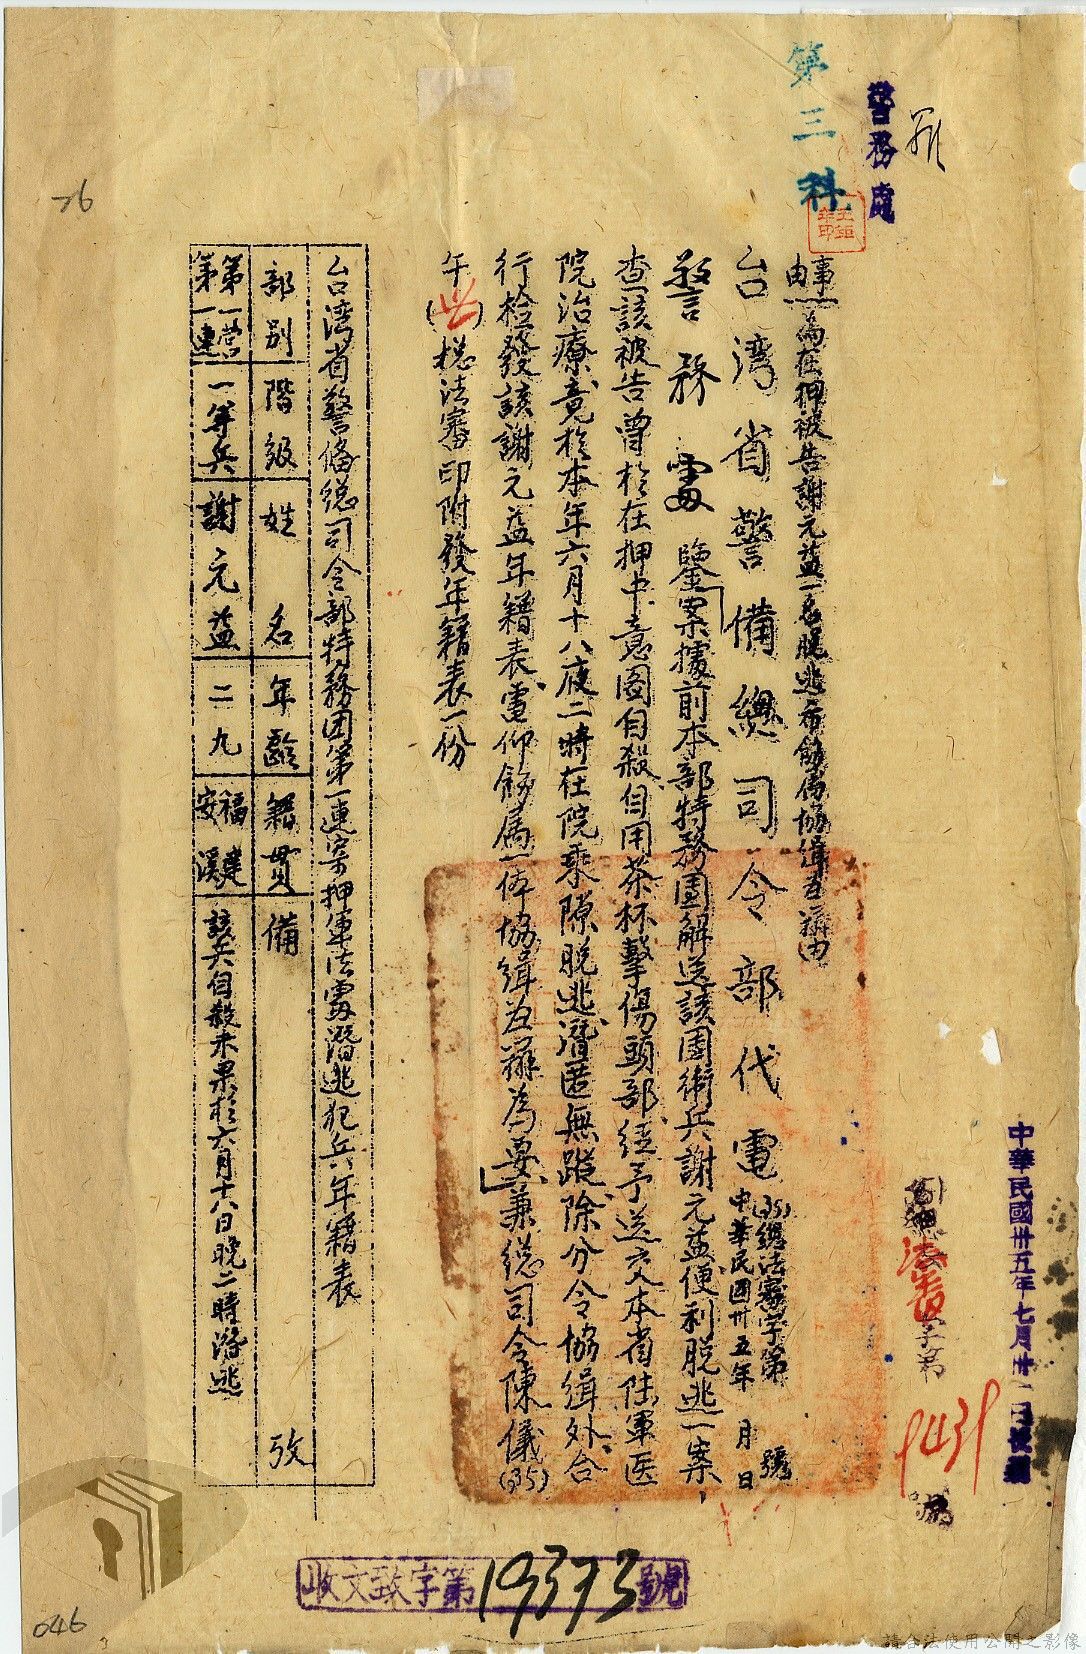 警務處
第三科
事由
為在押被告謝元益一名脫逃希飭屬協緝查獲由
台灣省警備總司令部代電
(35)總法審字第 號
中華民國卅五年 月 日
警務處鑒「案據前本部特務團解送該團衛兵謝元益便利脫逃一案
查該被告曾於在押中意圖自殺自用茶杯擊傷頭部經予送入本省陸軍医
院治療竟於本年六月十八夜二時在院乘隙脫逃潛匿無蹤除分令協緝外合
行檢發該謝元益年籍表電仰飭屬一体協緝為要」兼總司令陳儀(35)
午( )總法審印附發年籍表一份
台湾省警俻總司令部特務团第一連寄押軍法處潛逃犯兵年籍表
部別 階級 姓名 年齡 籍貫 備攷
第一營第一連 一等兵 謝元益 二九 福建安溪 該兵自殺未果於六月十八日晚二時潛逃
中華民國卅五年七月卅一日
法審字第9431號
收文致字第19373號
76
046
請合法使用公開之影像